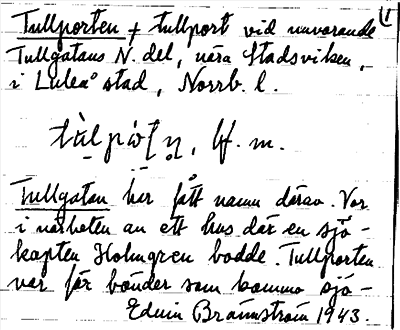 Tullporten + tullport vid nuvarande (1
Tullgatans N. del, nära Stadsviken,
i Luleå stad, Norrb. l.
bf. m.
Tullgatan har fått namn därav. Var
i närheten av ett hus där en sjö-
kapten Holmgren bodde. Tullporten
var för bönder som kommo sjö-
Edvin Brännström 1943.